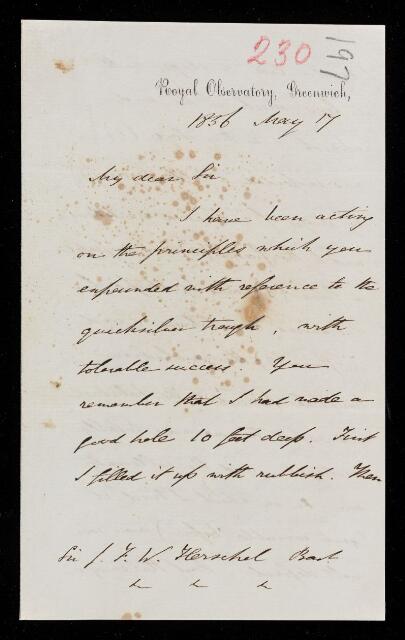 230
197
Royal Observatory, Greenwich,
1856 May 17
My dear Sir
I have been acting
on the principles which you
expounded with reference to the
quicksilver trough, with
tolerable success. You
remember that I had made a
good hole 10 feet deep. First
I filled it up with rubbish. Then
Sir J. F. W. Herschel Bart